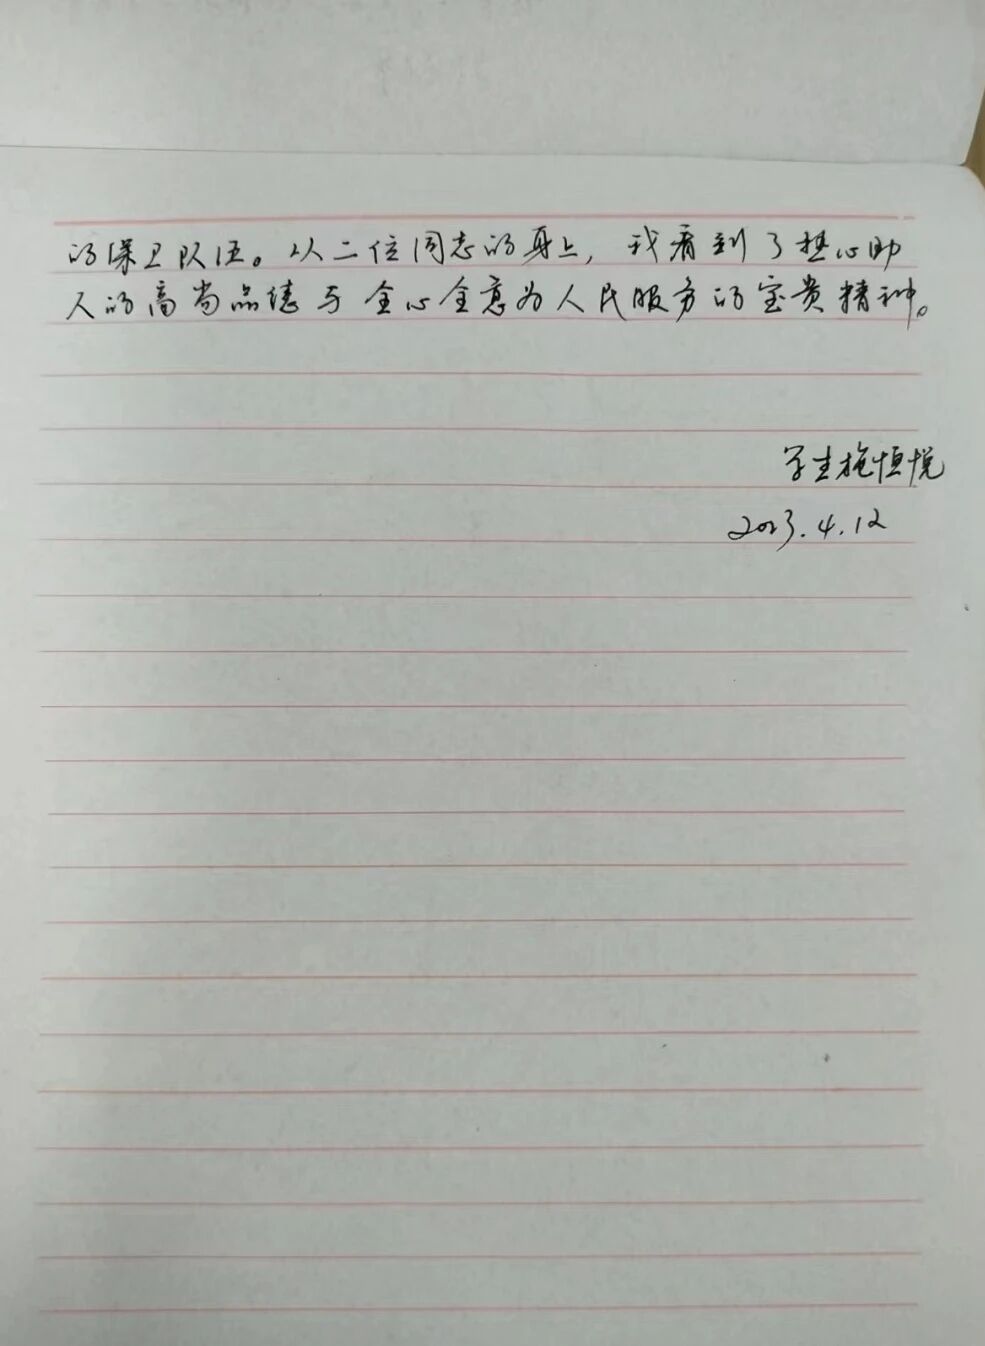 的保卫队伍。从二位同志的身上，我看到了热心助
人的高尚品德与全心全意为人民服务的宝贵精神。
学生施恒悦
2023.4.12